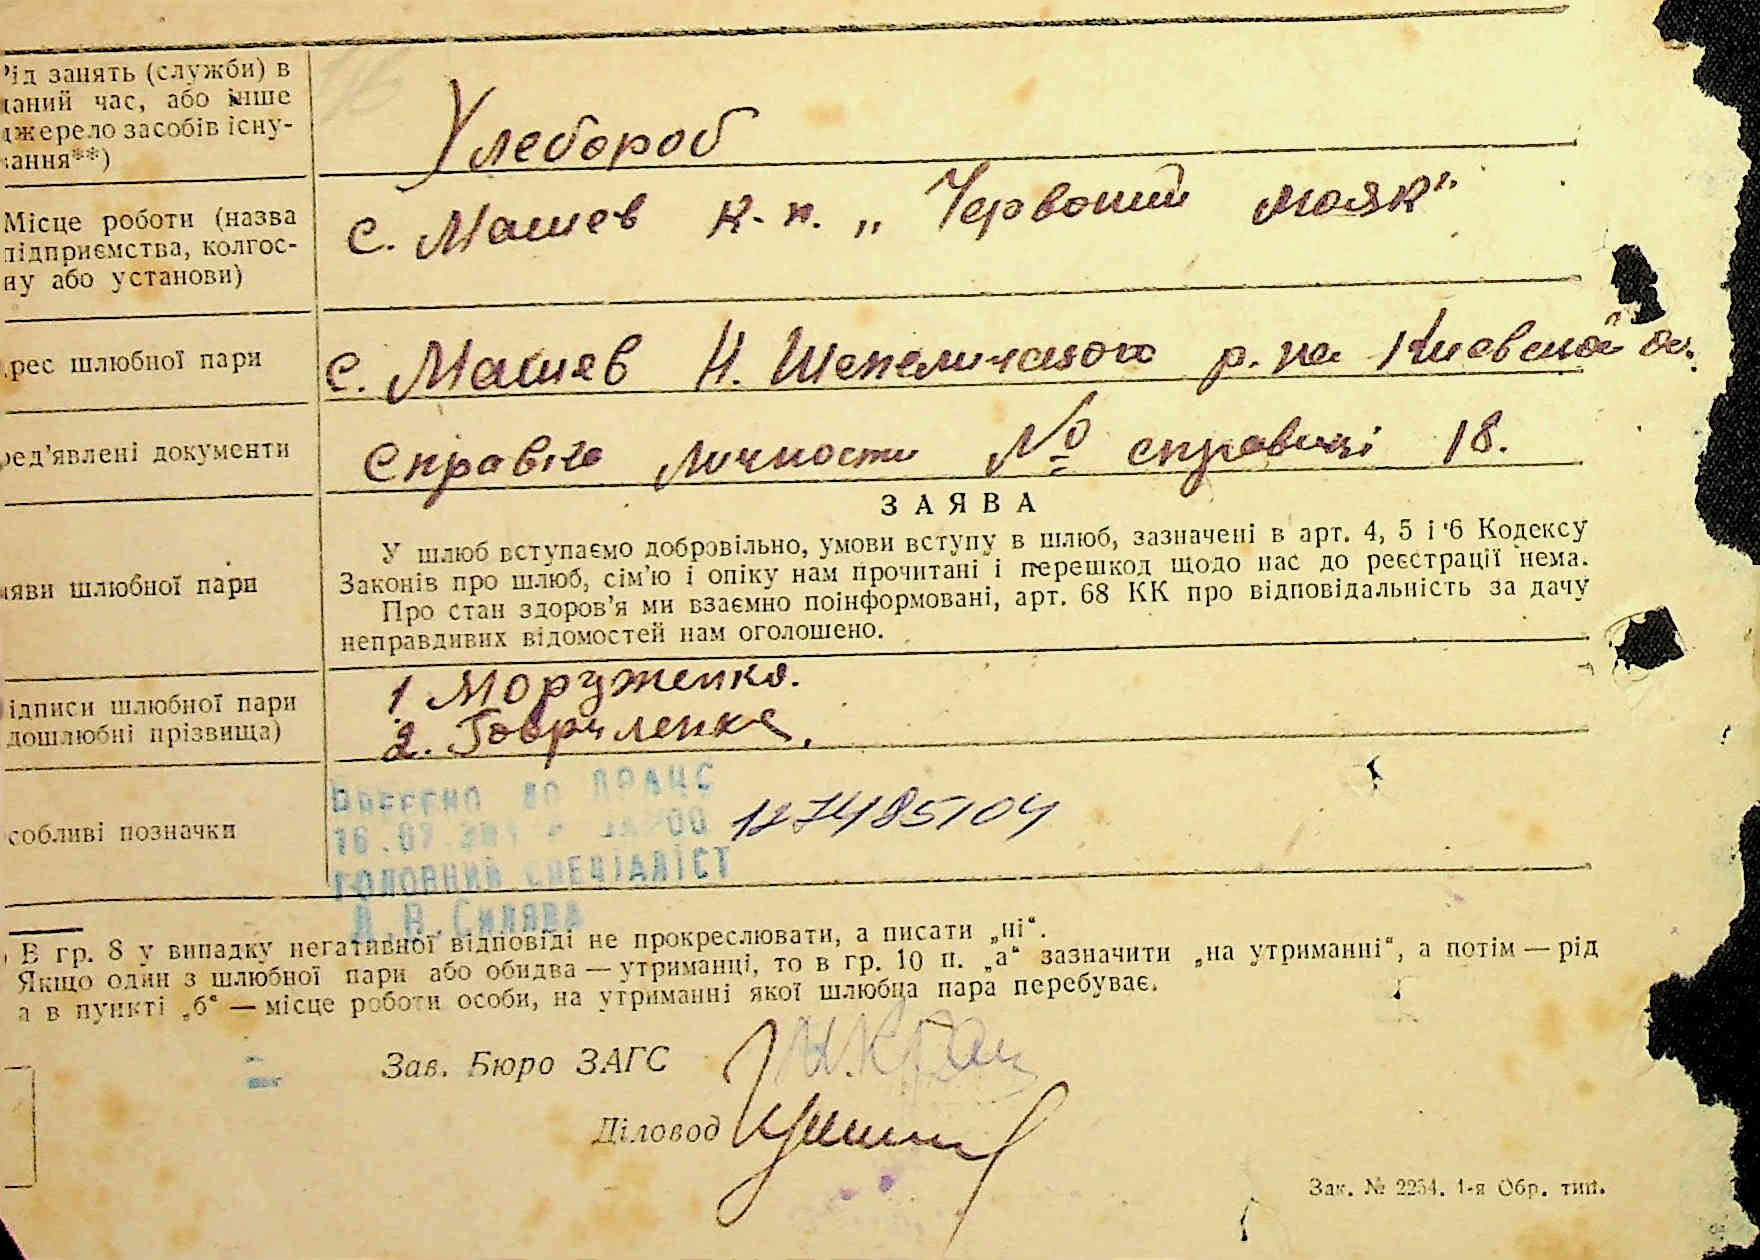 Рід занять (служби) в
даний час, або інше
джерело засобів існу-
вання**)
Хлебороб
Місце роботи (назва
підприємства, колгос-
пу або установи)
с. Машев к-п. „Червоний маяк".
Адрес шлюбної пари
с. Машев Н. Шепеличского р. на Киевской об.
Пред'явлені документи
Справка личности № справки 18.
ЗАЯВА
Заяви шлюбної пари
У шлюб вступаємо добровільно, умови вступу в шлюб, зазначені в арт. 4, 5 і 6 Кодексу
Законів про шлюб, сім'ю і опіку нам прочитані і перешкод щодо нас до реєстрації нема.
Про стан здоров'я ми взаємно поінформовані, арт. 68 КК про відповідальність за дачу
неправдивих відомостей нам оголошено.
Підписи шлюбної пари
(дошлюбні прізвища)
1 Моруженко.
2. Гавриленко.
Особливі позначки
Внесено до ДРАЦС
16.07.
ГОЛОВНИЙ СПЕЦІАЛІСТ
127485104
) В гр. 8 у випадку негативної відповіді не прокреслювати, а писати „ні".
Якщо один з шлюбної пари або обидва — утриманці, то в гр. 10 п. „а" зазначити „на утриманні", а потім — рід
а в пункті „б" — місце роботи особи, на утриманні якої шлюбна пара перебуває.
Зав. Бюро ЗАГС
Діловод
Зак. № 2254. 1-я Обр. тип.